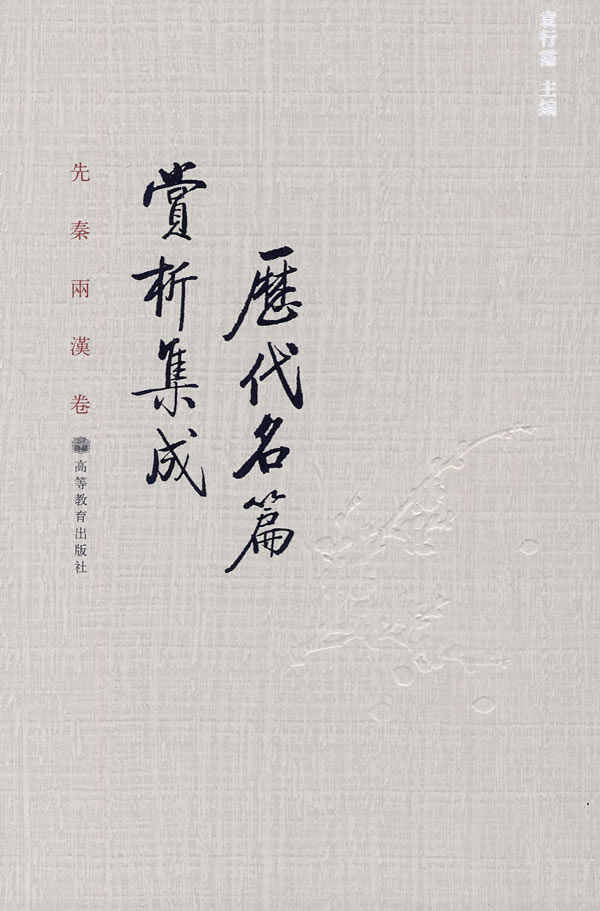 袁行霈 主编
歷代名篇
賞析集成
先秦兩漢卷
高等教育出版社